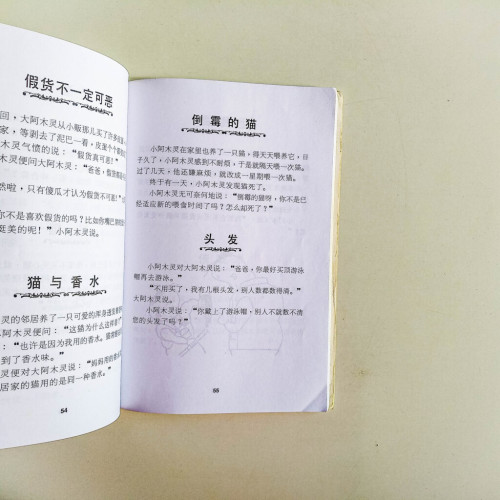 假货不一定可恶
回，大阿木灵从小贩那儿买了许多
家，等剥去了泥巴一看，皮蛋个个
木灵气愤的说：“假货真可恶！”
木灵便问大阿木灵：“爸爸，假货
然啦，只有傻瓜才认为假货不可
你不是喜欢假货的吗？比如你嘴巴
挺美的呢！”小阿木灵说。
猫与香水
灵的邻居养了一只可爱的浑身透
阿木灵便问：“这猫为什么这样
：“也许是因为我用的香水。
到了香水味。”
灵便对大阿木灵说：“妈妈用的
居家的猫用的是同一种香水。”
54
倒霉的猫
小阿木灵在家里也养了一只猫，得天天喂养它，日
子久了，小阿木灵感到不耐烦，于是就隔天喂一次猫。
过了几天，他还嫌麻烦，就改成一星期喂一次猫。
终于有一天，小阿木灵发现猫死了。
小阿木灵无可奈何地说：“倒霉的猫呀，你不是已
经适应新的喂食时间了吗？怎么却死了？”
头发
小阿木灵对大阿木灵说：“爸爸，你最好买顶游泳
帽再去游泳。”
“不用买了，我有几根头发，别人数都数得清。”
大阿木灵说。
小阿木灵说：“你戴上了游泳帽，别人不就数不清
您的头发了吗？”
55